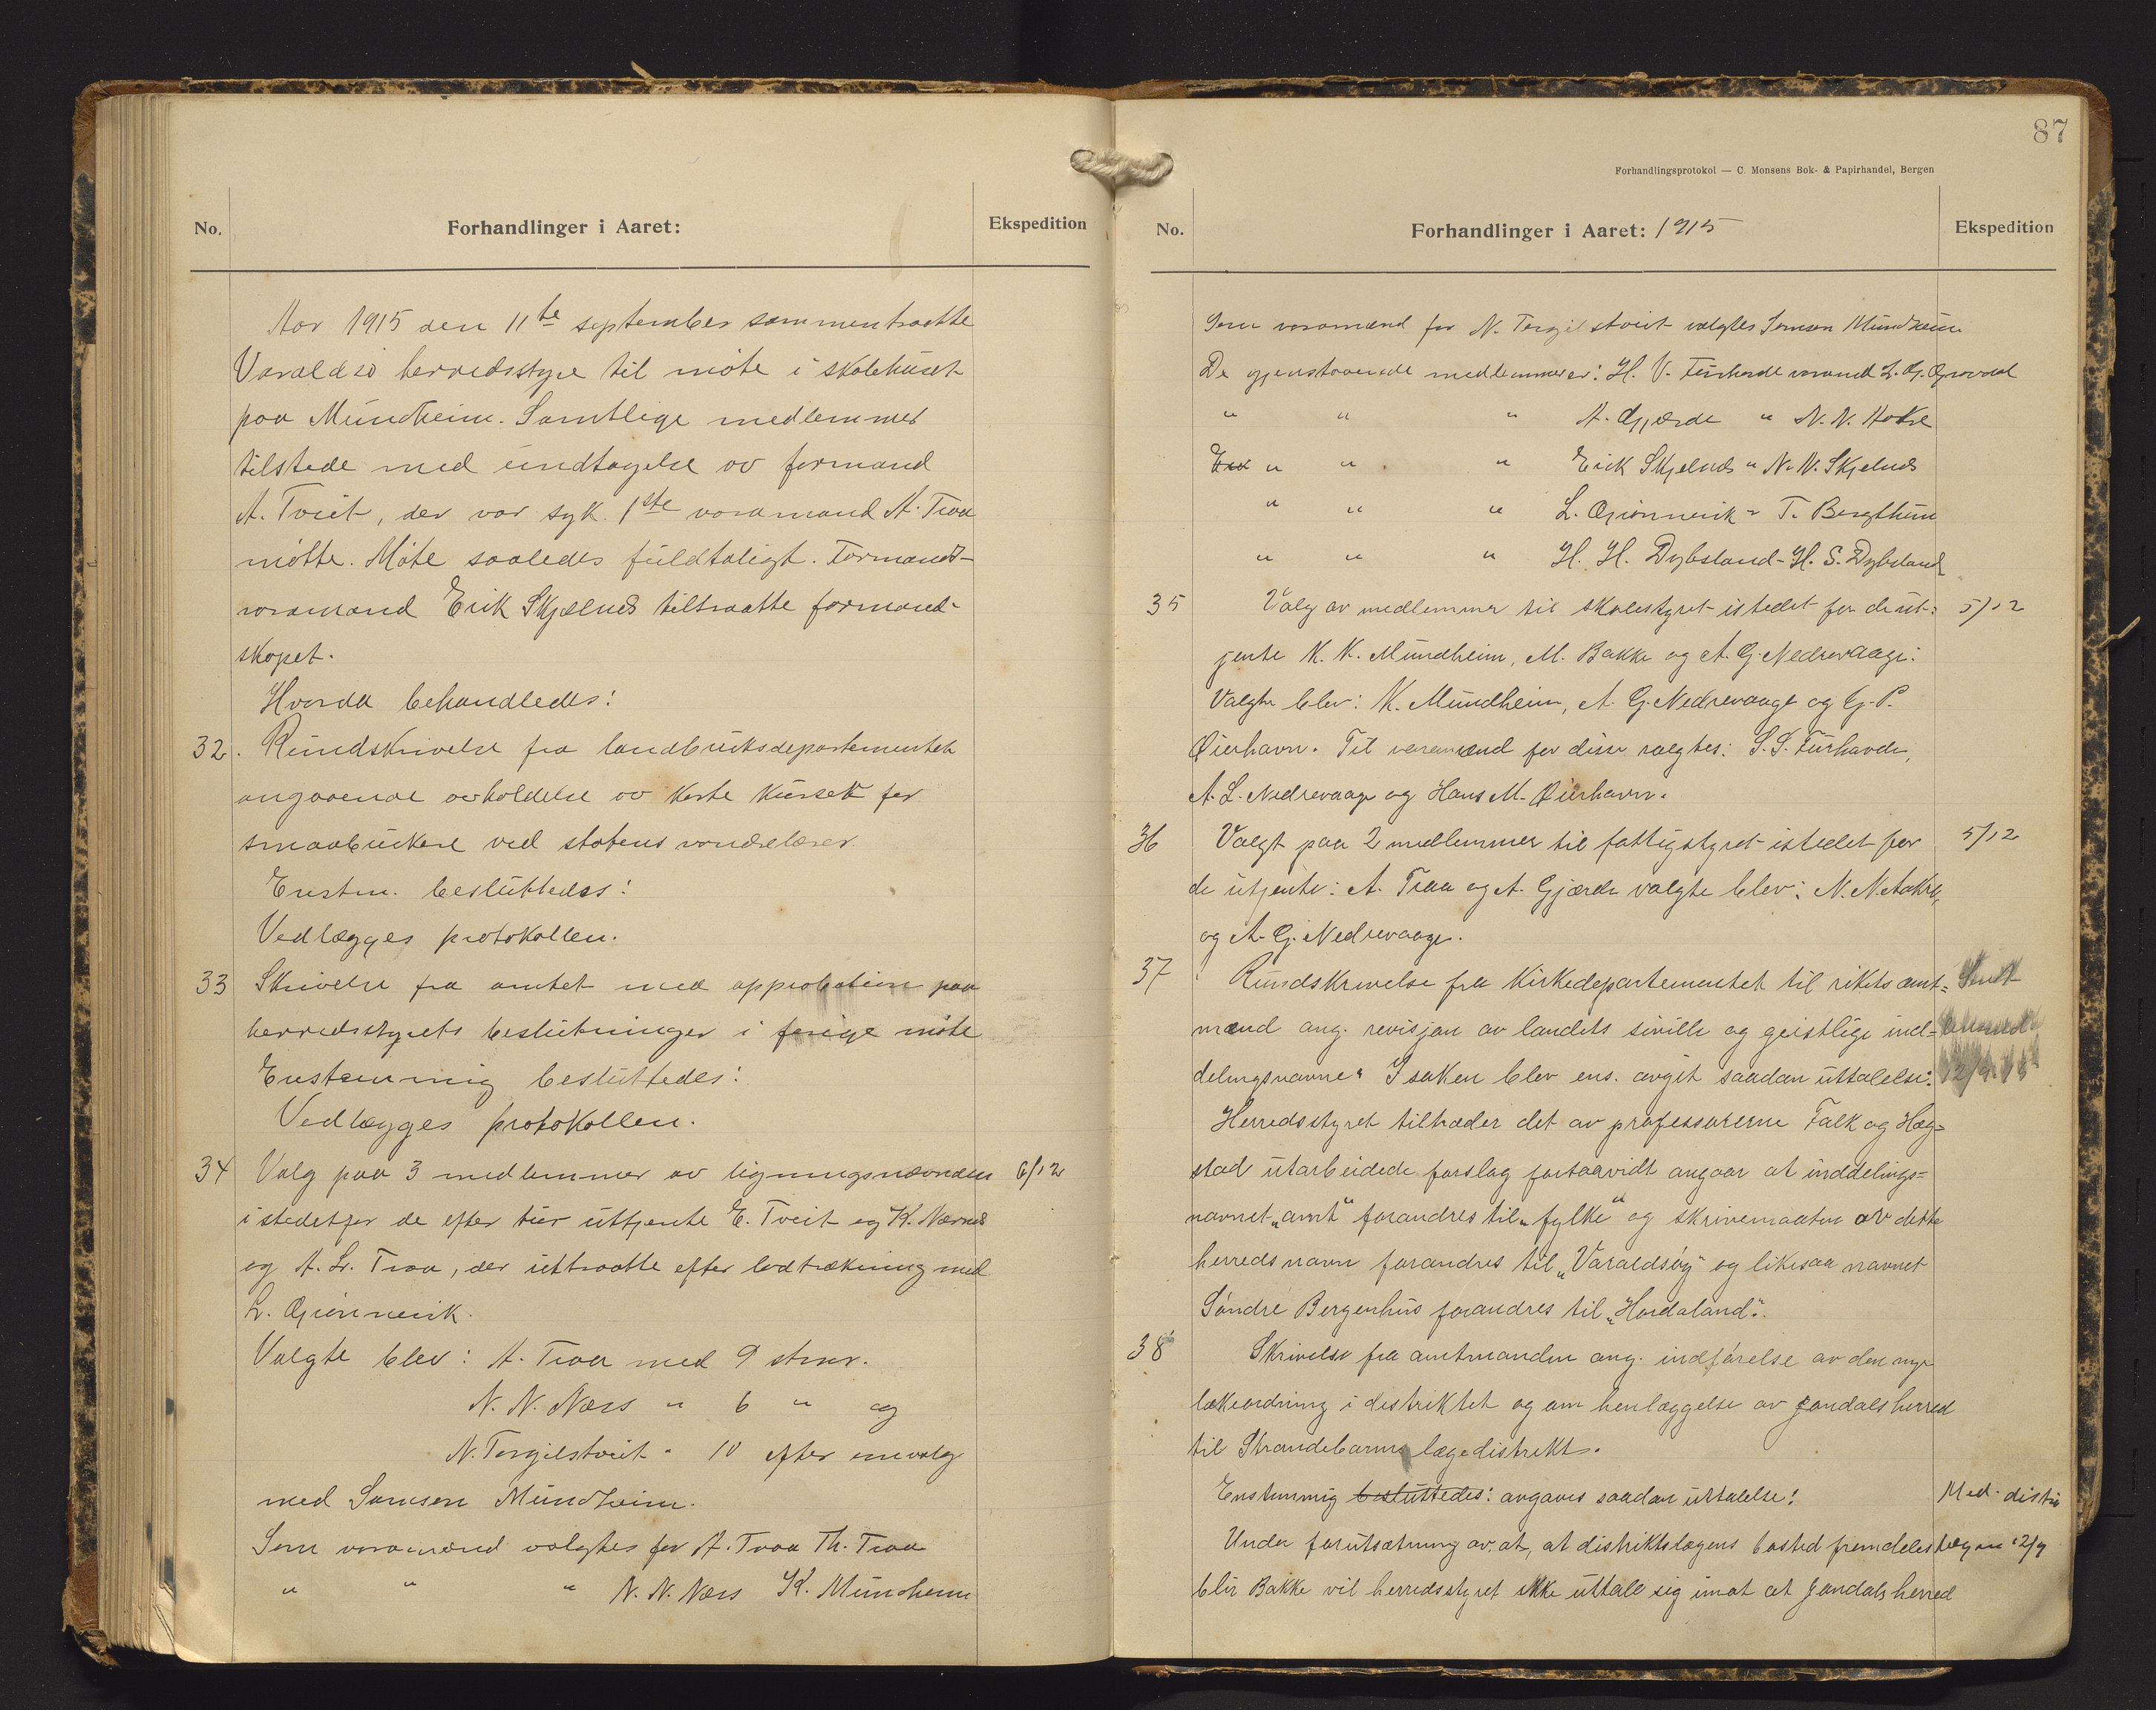 No.
Forhandlinger i Aaret:
Ekspedition
Aar 1915 den 11te september sammentraatte
Varaldsö herredsstyre til möte i skolehuset
paa Mundheim. Samtlige medlemmer
tilstede med undtagelse av formand
A. Tveit, der var syk. 1ste varamand A. Traa
mötte. Möte saaledes fuldtaligt. Formand-
varamand Erik Skjelnes tiltraatte formand-
skapet.
Hvorda behandledes:
32. Rundskrivelse fra landbruksdepartementet
angaaende avholdelse av korte kurser for
smaabrukere ved statens vandrelærer.
Enstm. besluttedes:
Vedlægges protokollen.
33 Skrivelse fra amtet med approbation paa
herredsstyrets beslutninger i forige möte
Enstemmig besluttedes:
Vedlægges protokollen.
34 Valg paa 3 medlemmer av ligningsnævnden 6/12
istedetfor de efter tur uttjente E. Tveit og K. Nernes
og A. Lr. Traa, der uttraatte efter lodtrækning med
L. Gjönnevik.
Valgte blev: A. Traa med 9 stmr.
N. N. Næss " 6 " og
N. Torgilstveit " 10 efter omvalg
med Samson Mundheim.
Som varamænd valgtes for A. Traa Th. Traa
" " " N. N. Næss K. Mundheim
87
Forhandlingsprotokol — C. Monsens Bok- & Papirhandel, Bergen
No.
Forhandlinger i Aaret: 1915
Ekspedition
Som varamænd for N. Torgilstveit valgtes Samson Mundheim
De gjenstaaende medlemmer er: H. V. Furhovde varamd L. G.
" " " A. Gjærde " N. N. Aakre
" " " Erik Skjelnes " N. N. Skjelnes
" " " L. Gjönnevik " T. Bergthun
" " " H. H. Dybsland - H. S. Dybsland
35 Valg av medlemmer til skolestyret istedet for de ut= 5/12
jente K. K. Mundheim, M. Bakke og A. G. Nedrevaage:
Valgte blev: K. Mundheim, A. G. Nedrevaage og G. P.
Øierhavn. Til varamænd for disse valgtes: S. S. Furhovde,
A. L. Nedrevaage og Hans M. Øierhavn.
36 Valgt paa 2 medlemmer til fattigstyret istedet for 5/12
de utjente: A. Traa og A. Gjærde valgte blev: N. N. Aakre,
og A. G. Nedrevaage.
37 Rundskrivelse fra Kirkedepartementet til rikets amt= Sendt
mænd ang. revisjon av landets siville og geistlige ind-
delingsnavne. I saken blev ens. avgit saadan uttalelse: 12/9. 15
Herredsstyret tiltræder det av professorerne Falk og Hæg=
stad utarbeidede forslag forsaavidt angaar at inddelings=
navnet „amt“ forandres til „fylke“ og skrivemaaten av dette
herreds navn forandres til „Varaldsöy“ og likesaa navnet
Söndre Bergenhus forandres til „Hordaland“.
38 Skrivelse fra amtmanden ang. indförelse av den nye
lækeordning i distriktet og om henlæggelse av Jondals herred
til Strandebarms lægedistrikt.
Enstemmig besluttedes: avgaves saadan uttalelse: Med. distr.
Under forutsætning av, at, at distriktslægens bosted fremdeles 12/9
blir Bakke vil herredsstyret ikke uttale sig imot at Jondals herred